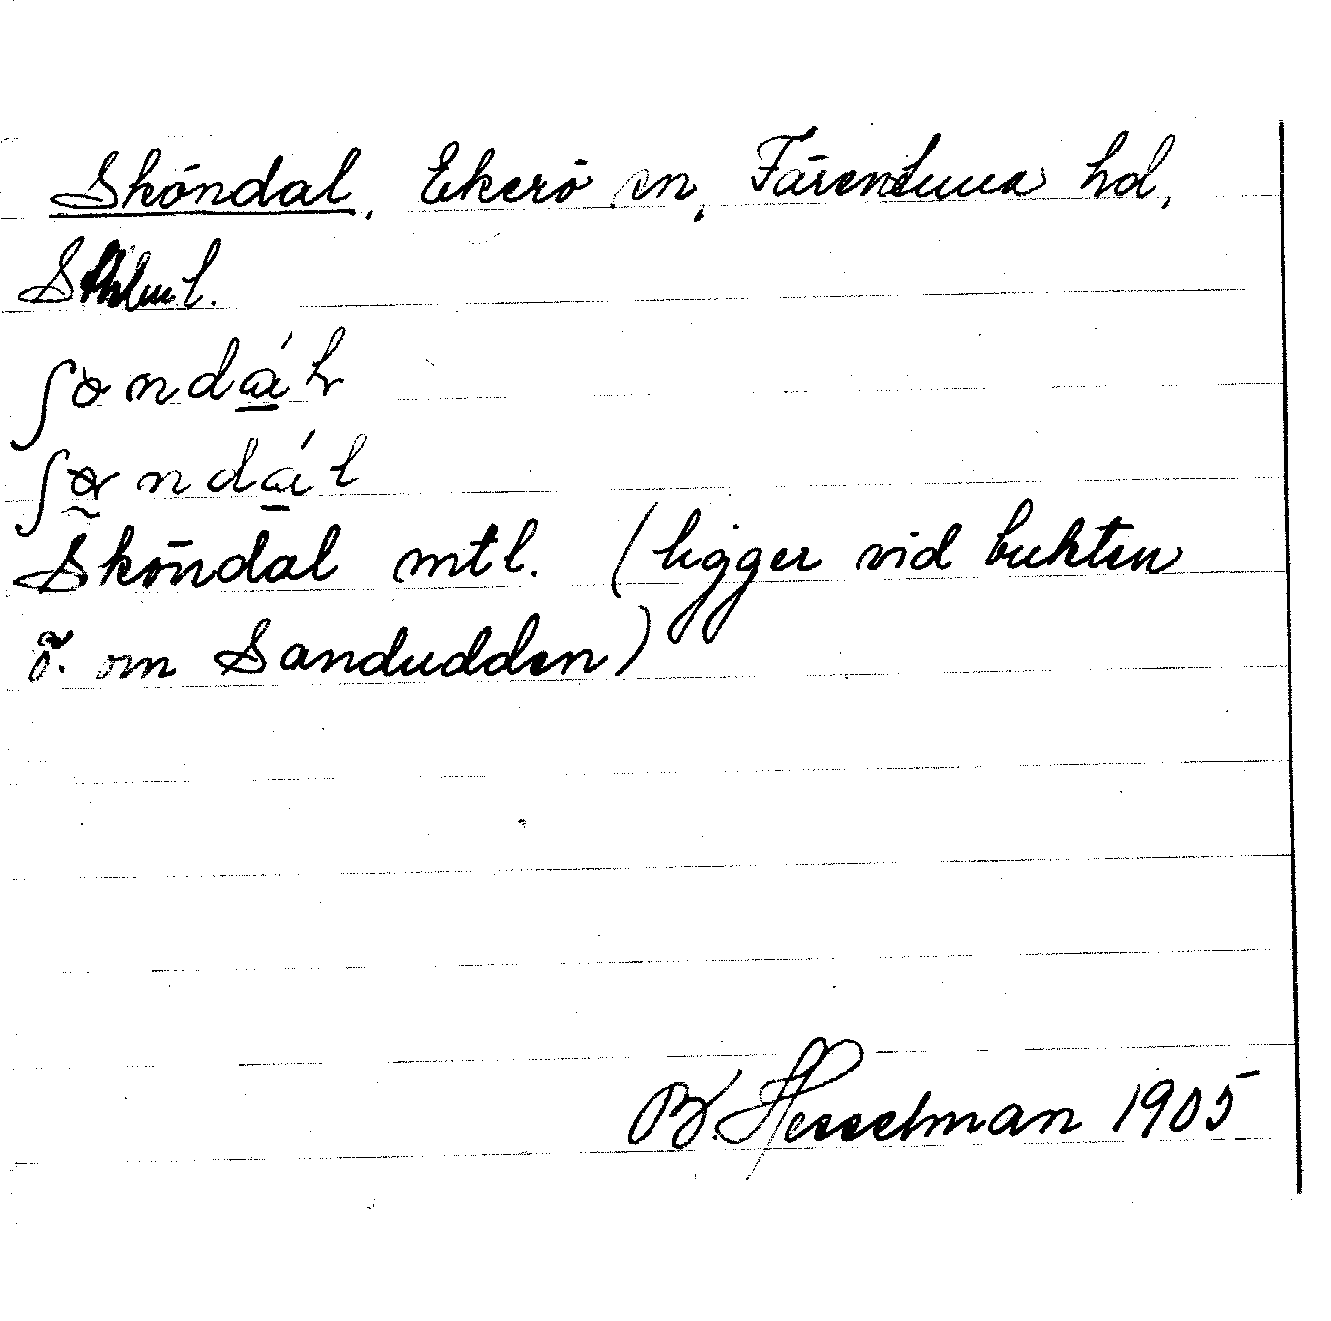 Sköndal, Ekerö sn, Färentuna hd,
Sthlms l.
ʃɵndáh
ʃɵndál
Sköndal mtl. (ligger vid bukten
ö. om Sandudden)
B. Hesselman 1905